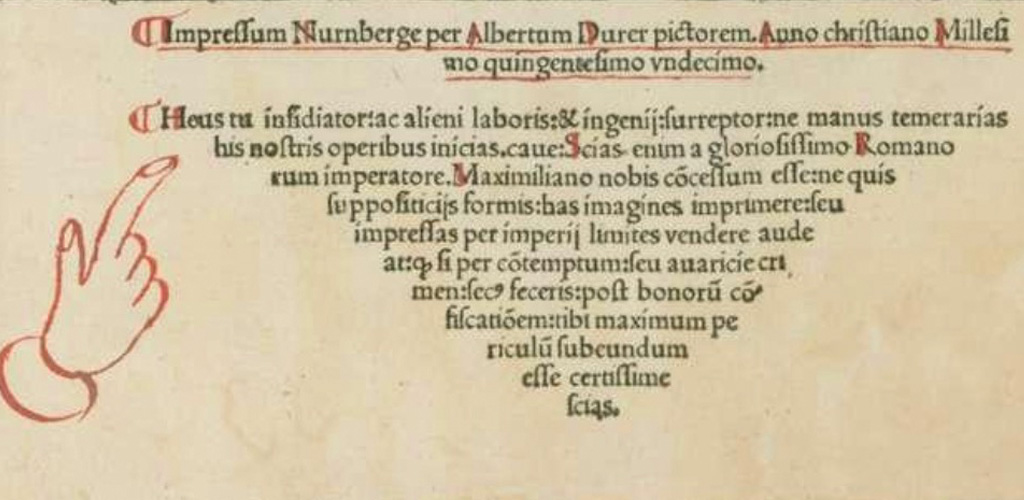 ¶Impreſſum Nurnberge per Albertum Durer pictorem. Anno chriſtiano Milleſi
mo quingenteſimo vndecimo.
¶Heus tu inſidiator: ac alieni laboris: & ingenij: ſurreptor: ne manus temerarias
his noſtris operibus inicias. caue: Scias enim a glorioſiſſimo Romano
rum imperatore. Maximiliano nobis cōceſſum eſſe: ne quis
ſuppoſiticijs formis: has imagines imprimere: ſeu
impreſſas per imperij limites vendere aude
at: ꝙ ſi per cōtemptum: ſeu auaricie cri
men: ſecꝰ feceris: poſt bonorū cō
fiſcatiōem: tibi maximum pe
riculū ſubeundum
eſſe certiſſime
ſcias.